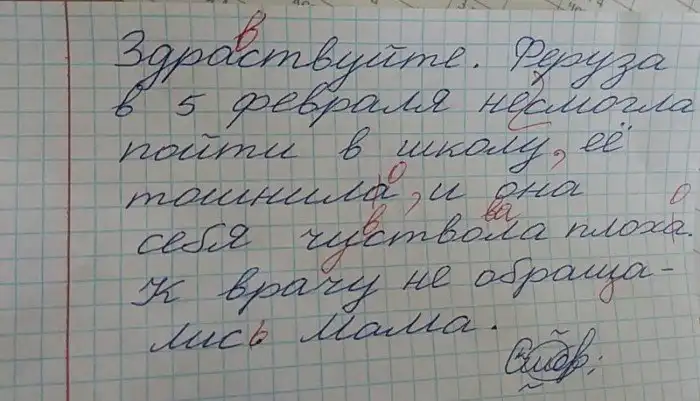 в
Здраствуйте. Феруза
в 5 февраля несмогла
пойти в школу, её
о
тошнила, и она
в ва о
себя чуствола плоха.
К врачу не обраща-
лись мама.